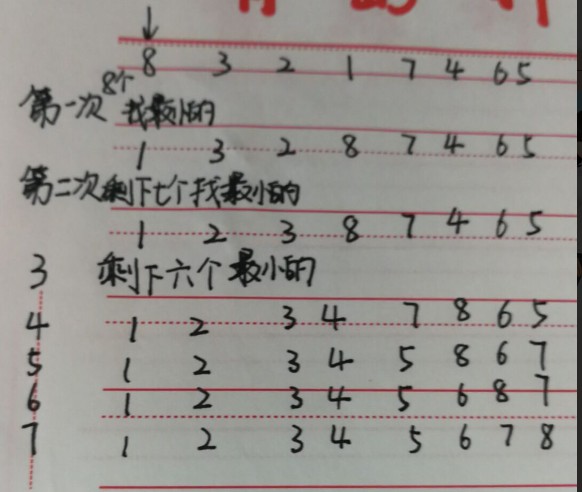 8 3 2 1 7 4 6 5
第一次 8个找最小的
1 3 2 8 7 4 6 5
第二次剩下七个找最小的
1 2 3 8 7 4 6 5
3 剩下六个最小的
4 1 2 3 4 7 8 6 5
5 1 2 3 4 5 8 6 7
6 1 2 3 4 5 6 8 7
7 1 2 3 4 5 6 7 8